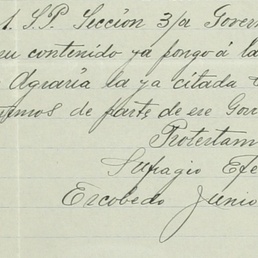 1. S.P. Sección 3/a Govern
su contenido ya pongo á la
Agraria la ya citada
de parte de ese Gov
Protestam
Sufragio Efe
Escobedo Junio